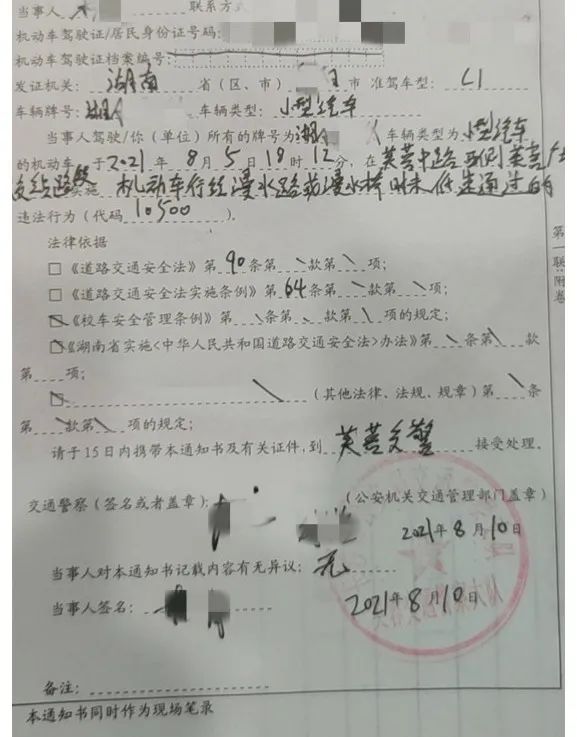 当事人 联系方
机动车驾驶证/居民身份证号码:
机动车驾驶证档案编号:
发证机关: 湖南 省(区、市) 市 准驾车型: C1
车辆牌号: 湘A 车辆类型: 小型汽车
当事人驾驶/你(单位)所有的牌号为湘A 车辆类型为小型汽车
的机动车,于2021年8月5日18时12分,在芙蓉中路西侧
交线路段实施 机动车行经漫水路或漫水桥时未低速通过的
违法行为(代码 10500 )。
法律依据
□《道路交通安全法》第90条第\款第\项;
□《道路交通安全法实施条例》第64条第\款第\项;
□《校车安全管理条例》第\条第\款第\项的规定;
□《湖南省实施<中华人民共和国道路交通安全法>办法》第\条第\款
第\项;
□ \ (其他法律、法规、规章)第\条
第\款第\项的规定;
请于15日内携带本通知书及有关证件,到 芙蓉交警 接受处理。
交通警察(签名或者盖章): (公安机关交通管理部门盖章)
2021年8月10日
当事人对本通知书记载内容有无异议: 无
当事人签名: 2021年8月10日
备注:
本通知书同时作为现场笔录
第一联:附卷